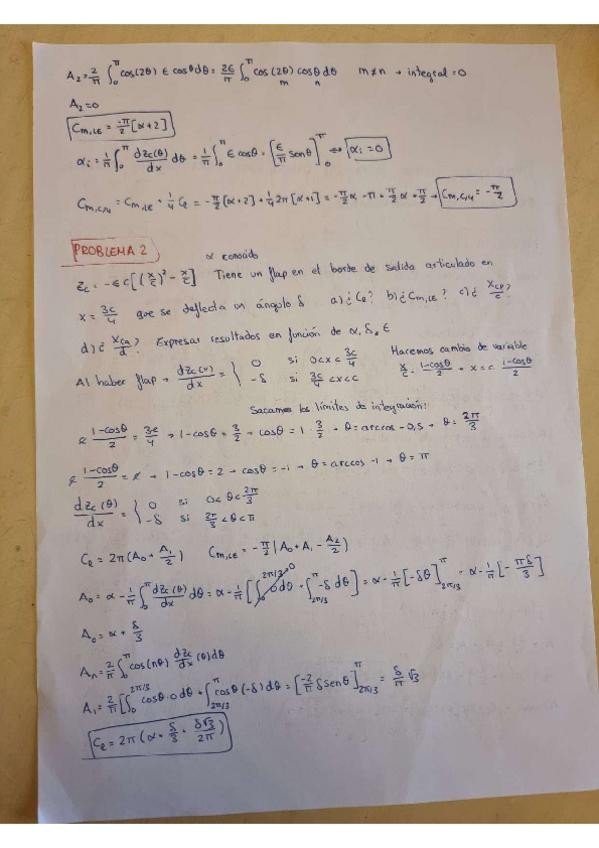 A₂ = 2/π ∫₀^π cos(2θ) ε cosθ dθ = 2ε/π ∫₀^π cos(2θ) cosθ dθ m≠n → integral = 0
m n
A₂ = 0
Cm,LE = -π/2 [α+2]
αi = 1/π ∫₀^π dzc(θ)/dx dθ = 1/π ∫₀^π ε cosθ = [ε/π senθ]₀^π → αi = 0
Cm,c/4 = Cm,LE + 1/4 Cl = -π/2 [α+2] + 1/4 2π [α+1] = -π/2 α - π + π/2 α + π/2 → Cm,c/4 = -π/2
PROBLEMA 2 α conocido
zc = -εc [(x/c)² - x/c] Tiene un flap en el borde de salida articulado en
x = 3c/4 que se deflecta un ángulo δ a) ¿Cl? b) ¿Cm,LE? c) ¿ xCP/c ?
d) ¿ xCA/d ? Expresar resultados en función de α, δ, ε
Al haber flap → dzc(x)/dx = { 0 si 0<x<3c/4
-δ si 3c/4<x<c
Hacemos cambio de variable
x/c = 1-cosθ/2 → x = c 1-cosθ/2
Sacamos los límites de integración:
c 1-cosθ/2 = 3c/4 → 1-cosθ = 3/2 → cosθ = 1 - 3/2 → θ = arccos -0,5 → θ = 2π/3
c 1-cosθ/2 = c → 1-cosθ = 2 → cosθ = -1 → θ = arccos -1 → θ = π
dzc(θ)/dx = { 0 si 0<θ<2π/3
-δ si 2π/3<θ<π
Cl = 2π(A₀ + A₁/2) Cm,LE = -π/2 (A₀ + A₁ - A₂/2)
A₀ = α - 1/π ∫₀^π dzc(θ)/dx dθ = α - 1/π [∫₀^2π/3 0 dθ + ∫2π/3^π -δ dθ] = α - 1/π [-δθ]2π/3^π = α - 1/π [-πδ/3]
0
A₀ = α + δ/3
An = 2/π ∫₀^π cos(nθ) dzc/dx (θ) dθ
A₁ = 2/π [∫₀^2π/3 cosθ·0 dθ + ∫2π/3^π cosθ (-δ) dθ = [-2/π δ senθ]2π/3^π = δ/π √3
Cl = 2π (α + δ/3 + δ√3/2π)